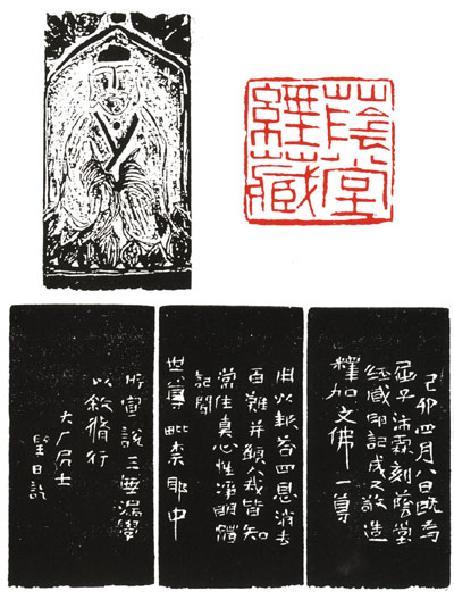 蔭堂
經藏
己卯四月八日既為
屈子沛霖刻蔭堂
經藏印記成又敬造
釋加文佛一尊
用以報答四恩消去
百難并願人我皆知
常住真心性淨明體
記聞
世尊毗奈耶中
所宣說三無漏學
以敘脩行
大厂居士
日記